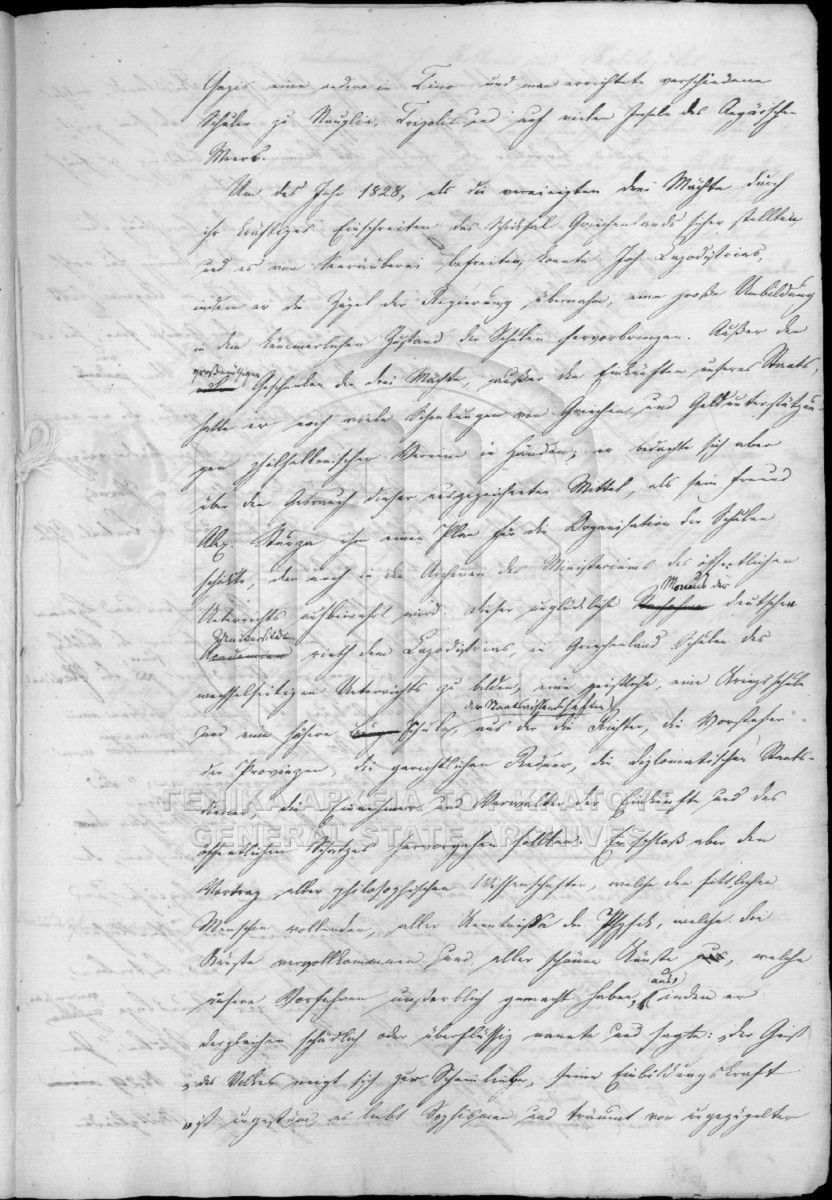 Gazis eine andere in Tino und man errichtete verschiedene
Schulen zu Nauplia, Tripolis und auf vielen Inseln des Aegäischen
Meers.
Um das Jahr 1828, als die vereinigten drei Mächte durch
ihr kräftiges Einschreiten das Schicksal Griechenlands sicher stellten,
und es von Seeräuberei befreiten, konnte Joh Capodistrias,
indem er die Zügel der Regierung übernahm, eine große Umbildung
in dem kümmerlichen Zustand der Schulen hervorbringen. Außer den
großmüthigen Geschenken der drei Mächte, außer den Einkünften unseres Staats,
hatte er noch viele Schenkungen von Griechen und Geldunterstützun-
gen philhellenischer Vereine in Händen; er bedachte sich aber
über den Gebrauch dieser ausgezeichneten Mittel, als sein Freund
Alex. Sturza ihm einen Plan für die Organisation der Schulen
schickte, der noch in den Archiven des Ministeriums des öffentlichen
Unterrichts aufbewahrt wird. Dieser unglückliche der deutschen
Universitäten rieth dem Capodistrias, in Griechenland Schulen des
wechselseitigen Unterrichts zu bilden, eine geistliche, eine Kriegsschule
und eine höhere Schule der Staatswissenschaften, aus der die Richter, die Vorsteher
der Provinzen, die gerichtlichen Redner, die diplomatischen Staats-
diener, die Einnehmer und Verwalter der Einkünfte und des
öffentlichen Schatzes hervorgehen sollten. Er schloß aber den
Vortrag aller philosophischen Wissenschaften, welche den sittlichen
Menschen vollenden, aller Kenntnisse der Physik, welche die
Künste vervollkommnen und aller schönen Künste aus, welche
unsere Vorfahren unsterblich gemacht haben, indem er
dergleichen schädlich oder überflüssig nannte und sagte: „der Geist
„des Volkes neigt sich zur Scheinliebe, seine Einbildungskraft
„ist ungestüm, es liebt Sophismen und träumt von ungezügelter
ΓΕΝΙΚΑ ΑΡΧΕΙΑ ΤΟΥ ΚΡΑΤΟΥΣ
GENERAL STATE ARCHIVES